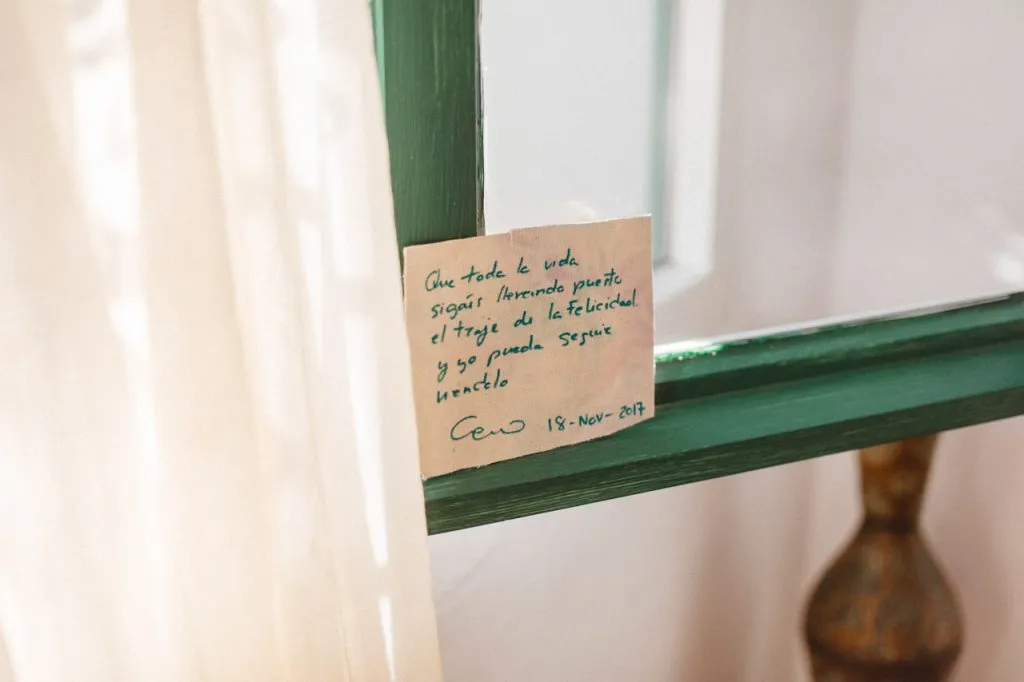 Que toda la vida
sigáis llevando puesto
el traje de la Felicidad
y yo pueda seguir
18-Nov-2017